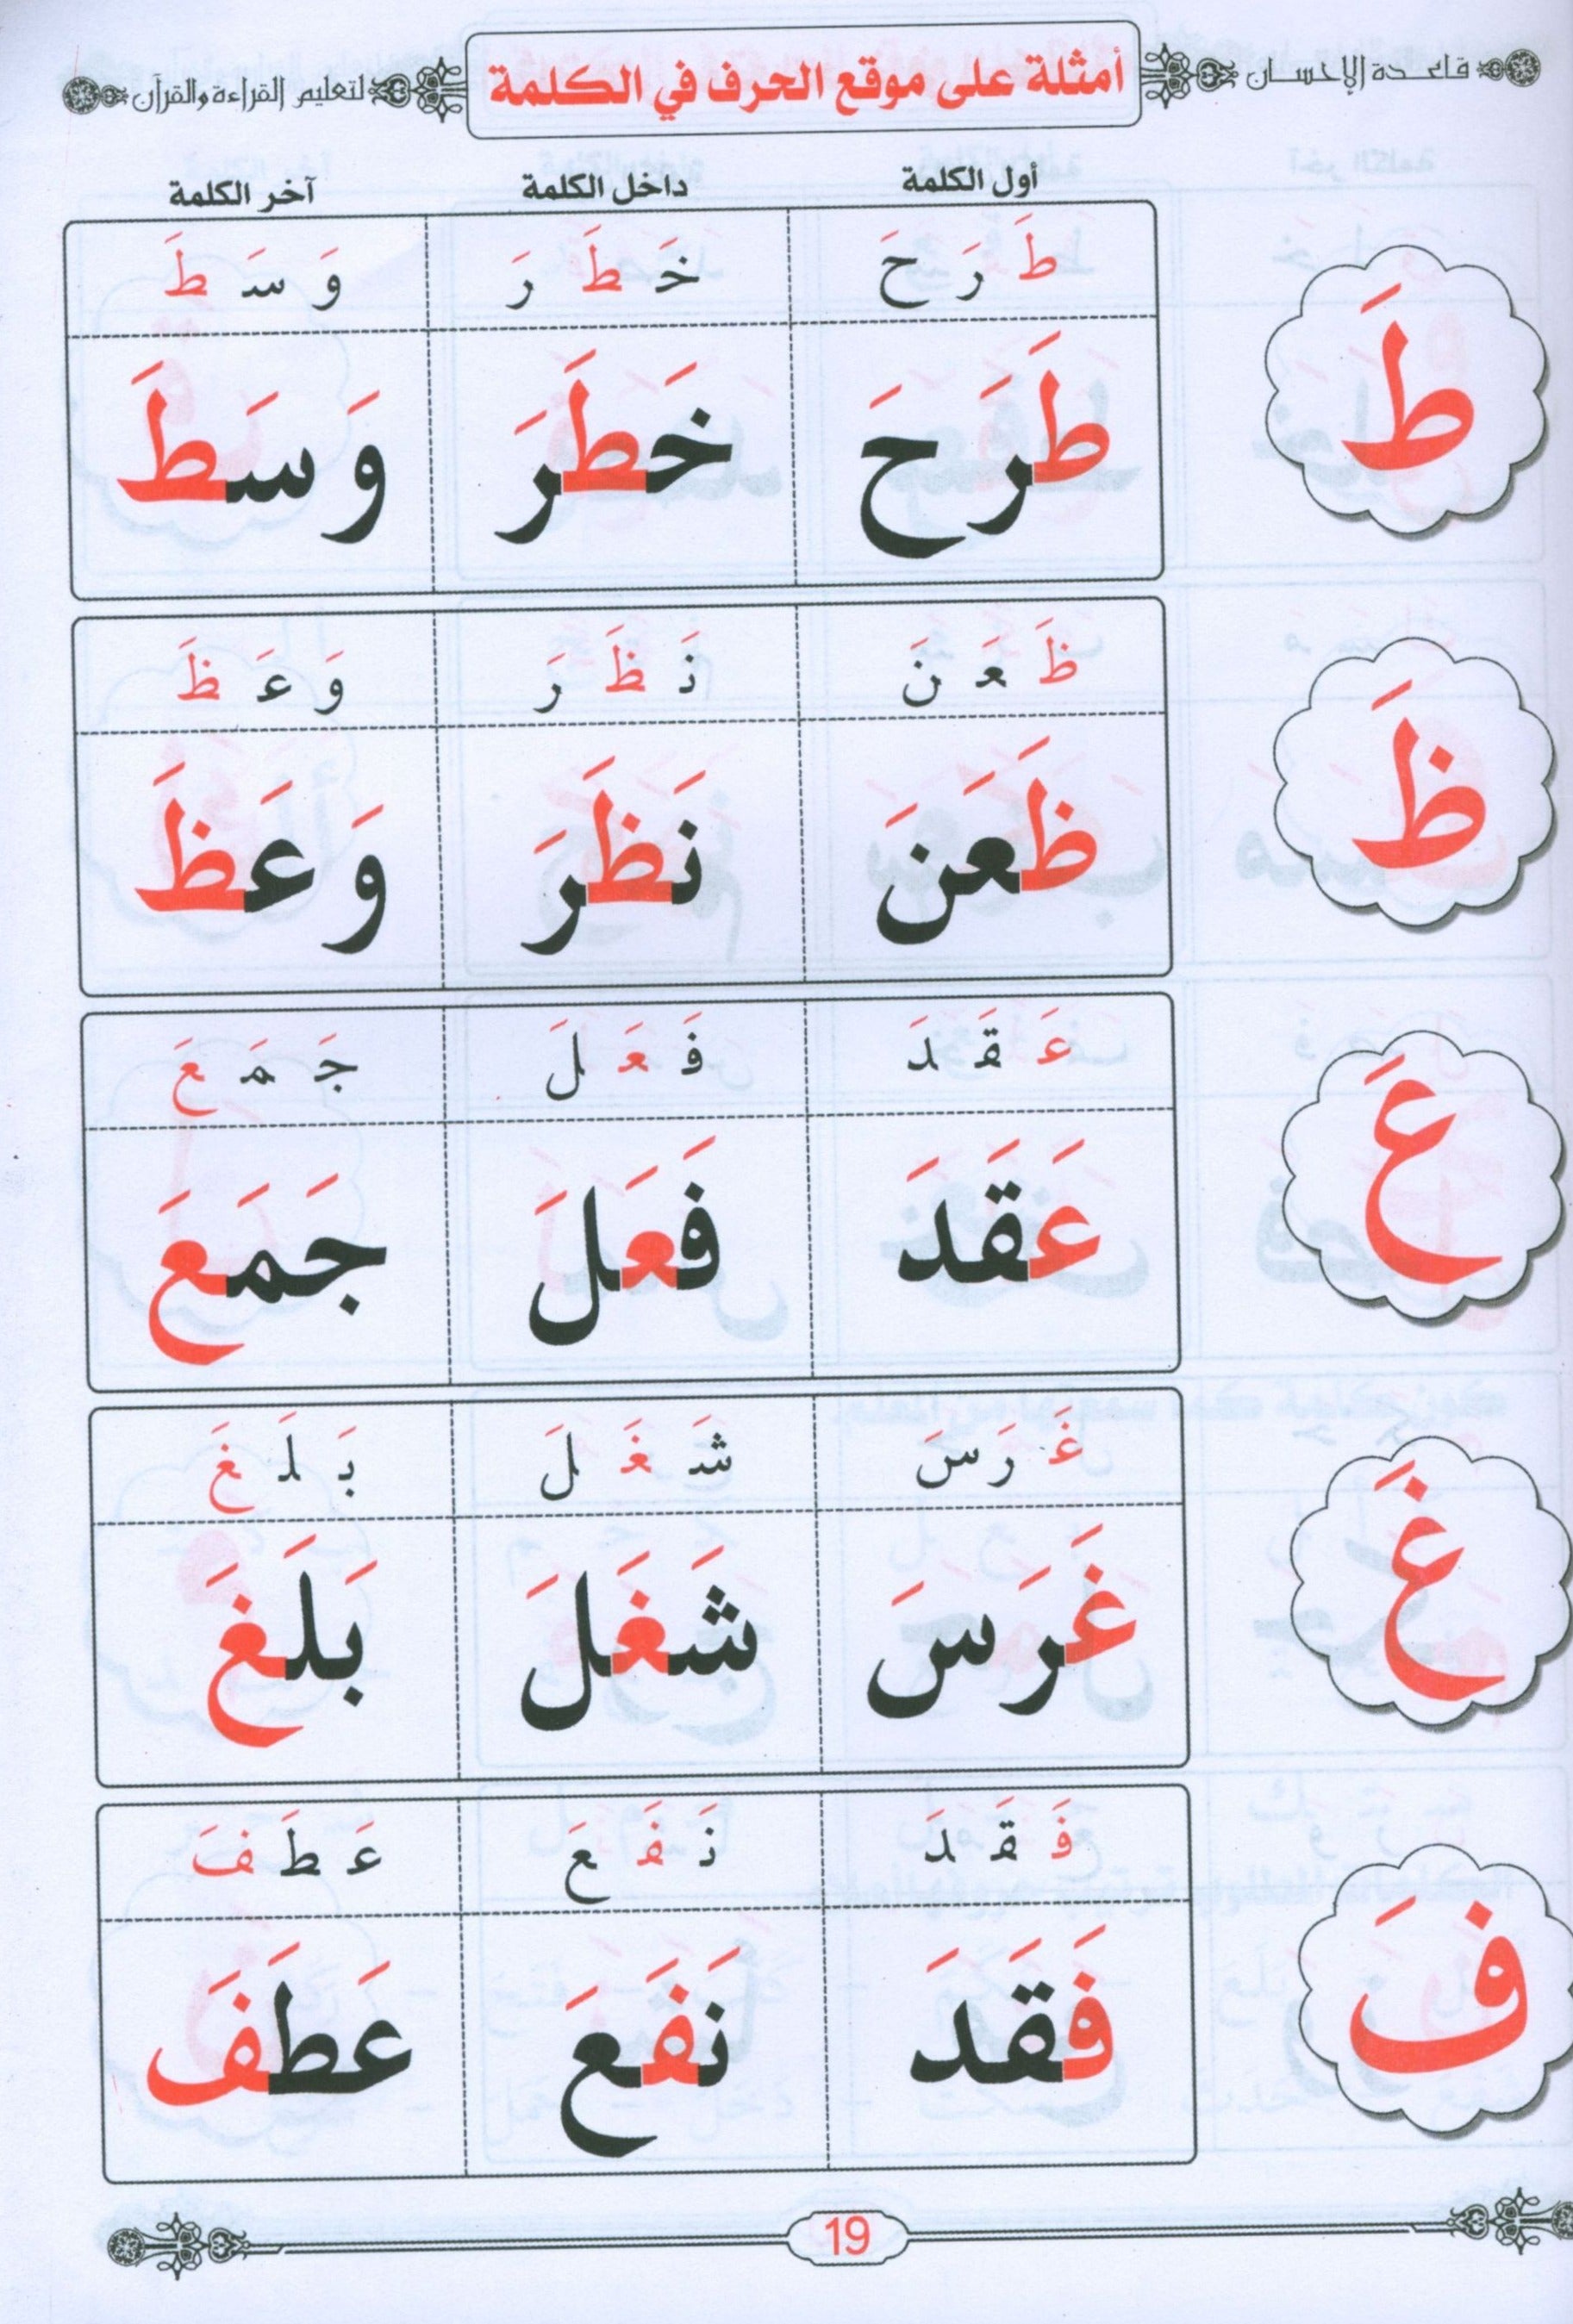 قاعدة الإحسان أمثلة على موقع الحرف في الكلمة لتعليم القراءة والقرآن
أول الكلمة داخل الكلمة آخر الكلمة
طَ رَ حَ خَ طَ رَ وَ سَ طَ
طَ طَرَحَ خَطَرَ وَسَطَ
ظَ عَ نَ نَ ظَ رَ وَ عَ ظَ
ظَ ظَعَنَ نَظَرَ وَعَظَ
عَ قَ دَ فَ عَ لَ جَ مَ عَ
عَ عَقَدَ فَعَلَ جَمَعَ
غَ رَ سَ شَ غَ لَ بَ لَ غَ
غَ غَرَسَ شَغَلَ بَلَغَ
فَ قَ دَ نَ فَ عَ عَ طَ فَ
فَ فَقَدَ نَفَعَ عَطَفَ
19